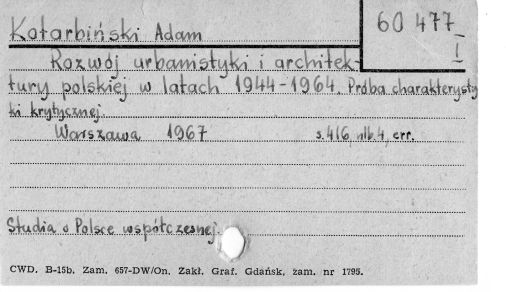 Kotarbiński Adam
60 477
I
Rozwój urbanistyki i architek-
tury polskiej w latach 1944-1964. Próba charakterysty
ki krytycznej.
Warszawa 1967 s. 416, nlb. 4, err.
Studia o Polsce współczesnej.
CWD. B-15b. Zam. 657-DW/On. Zakł. Graf. Gdańsk, zam. nr 1795.